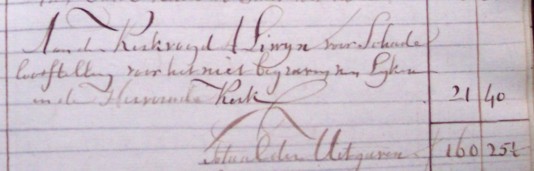 Aan den Kerkvoogd A Liwyn voor Schade
loosstelling voor het niet begraven van Lyken
in de Hervormde Kerk 21 40
Totaal der Uitgaven 160 25